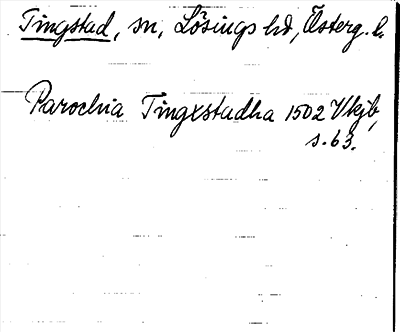 Tingstad, sn, Lösings hd, Österg. l.
Parochia Tingxstadha 1502 Vkjb,
s. 63.